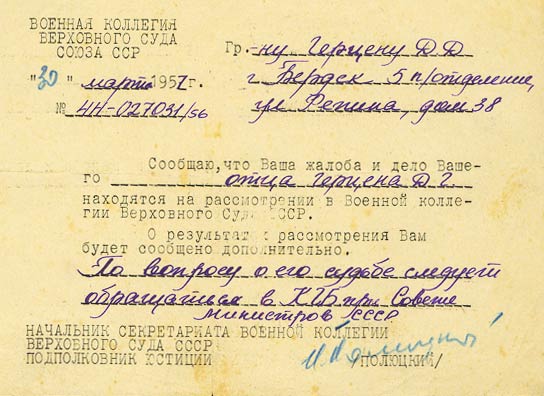 ВОЕННАЯ КОЛЛЕГИЯ
ВЕРХОВНОГО СУДА
СОЮЗА ССР
"30" марта 1957г.
№ 4Н-027031/56
Гр.-ну Герцену Д Д
г Бердск 5 п/отделение,
ул Репина, дом 38
Сообщаю, что Ваша жалоба и дело Ваше-
го отца Герцена Д Г.
находятся на рассмотрении в Военной колле-
гии Верховного Суда СССР.
О результатах рассмотрения Вам
будет сообщено дополнительно.
По вопросу о его судьбе следует
обращаться в КГБ при Совете
министров СССР
НАЧАЛЬНИК СЕКРЕТАРИАТА ВОЕННОЙ КОЛЛЕГИИ
ВЕРХОВНОГО СУДА СССР
ПОДПОЛКОВНИК ЮСТИЦИИ /ПОЛЮЦКИЙ/